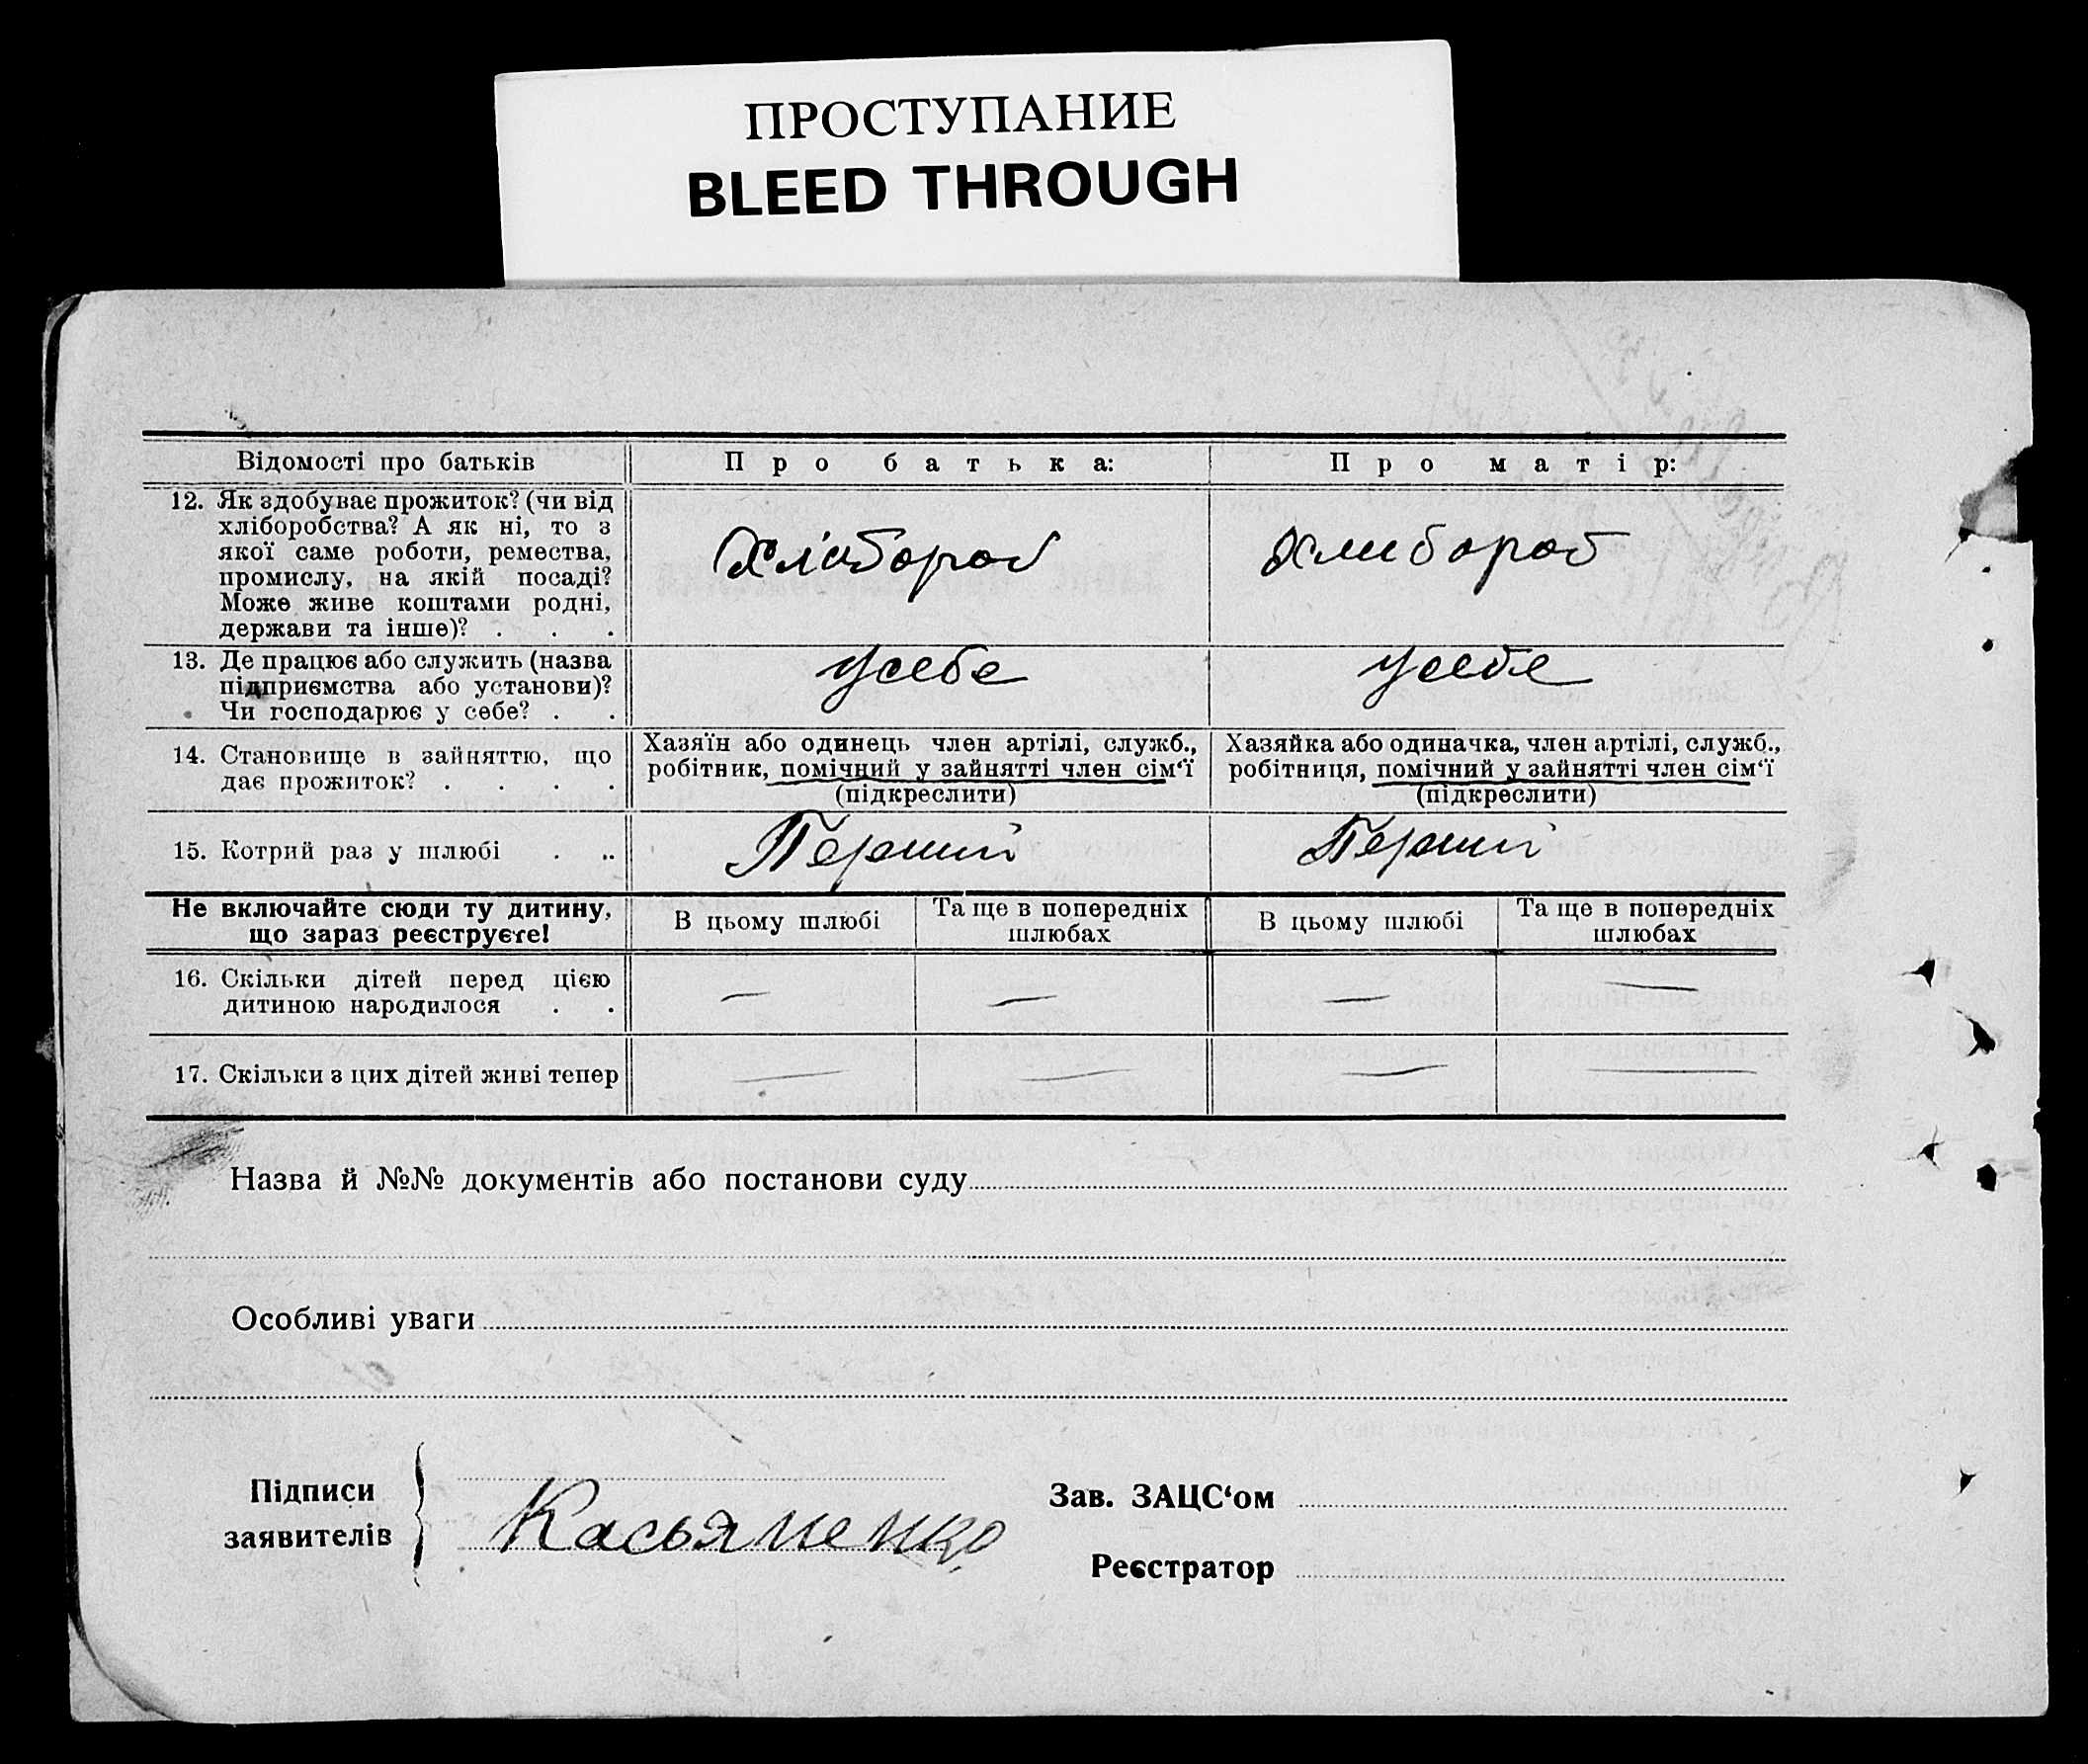 ПРОСТУПАНИЕ
BLEED THROUGH
Відомості про батьків
Про батька:
Про матір:
12. Як здобуває прожиток? (чи від
хліборобства? А як ні, то з
якої саме роботи, ремества,
промислу, на якій посаді?
Може живе коштами родні,
держави та інше)? . . .
Хлібороб
Хлибороб
13. Де працює або служить (назва
підприємства або установи)?
Чи господарює у себе? . .
Усебе
Усебе
14. Становище в зайняттю, що
дає прожиток? . . . .
Хазяїн або одинець член артілі, служб.,
робітник, помічний у зайнятті член сім‘ї
(підкреслити)
Хазяйка або одиначка, член артілі, служб.,
робітниця, помічний у зайнятті член сім‘ї
(підкреслити)
15. Котрий раз у шлюбі . ..
Перший
Перший
Не включайте сюди ту дитину,
що зараз реєструєте!
В цьому шлюбі
Та ще в попередніх
шлюбах
В цьому шлюбі
Та ще в попередніх
шлюбах
16. Скільки дітей перед цією
дитиною народилося . .
— — — —
17. Скільки з цих дітей живі тепер
— — — —
Назва й №№ документів або постанови суду
Особливі уваги
Підписи
заявителів
Касьяненко
Зав. ЗАЦС‘ом
Реєстратор